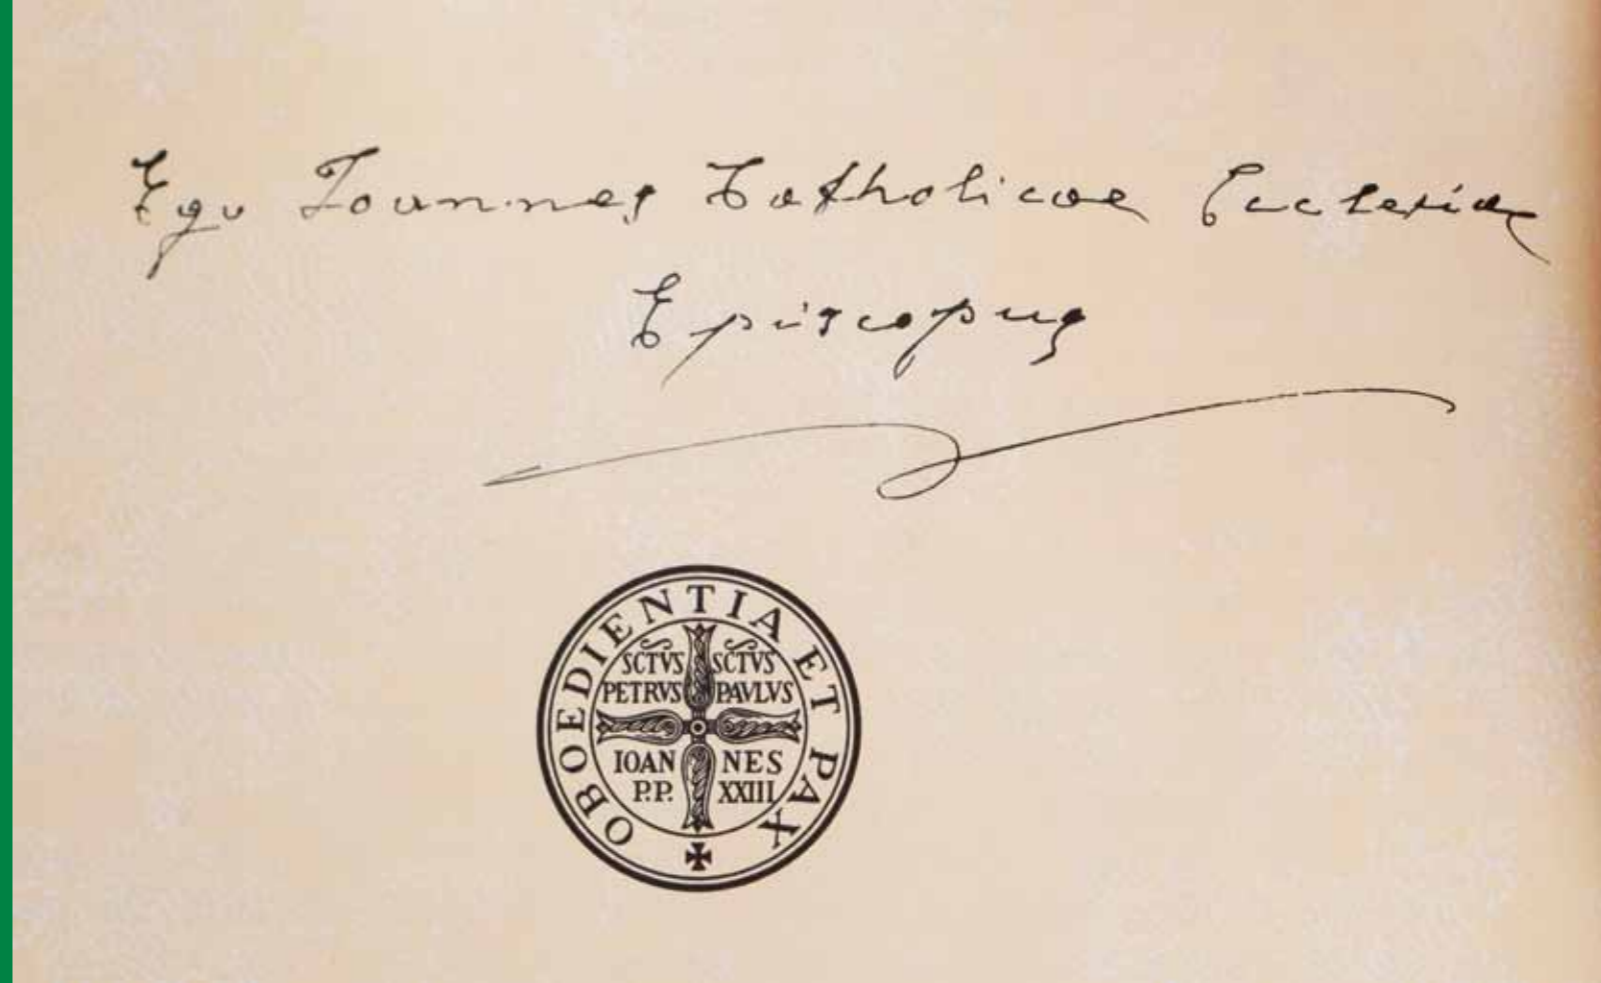 Ego Ioannes Catholicae Ecclesiae
Episcopus
OBOEDIENTIA ET PAX
SCTVS SCTVS
PETRVS PAVLVS
IOAN NES
P.P. XXIII